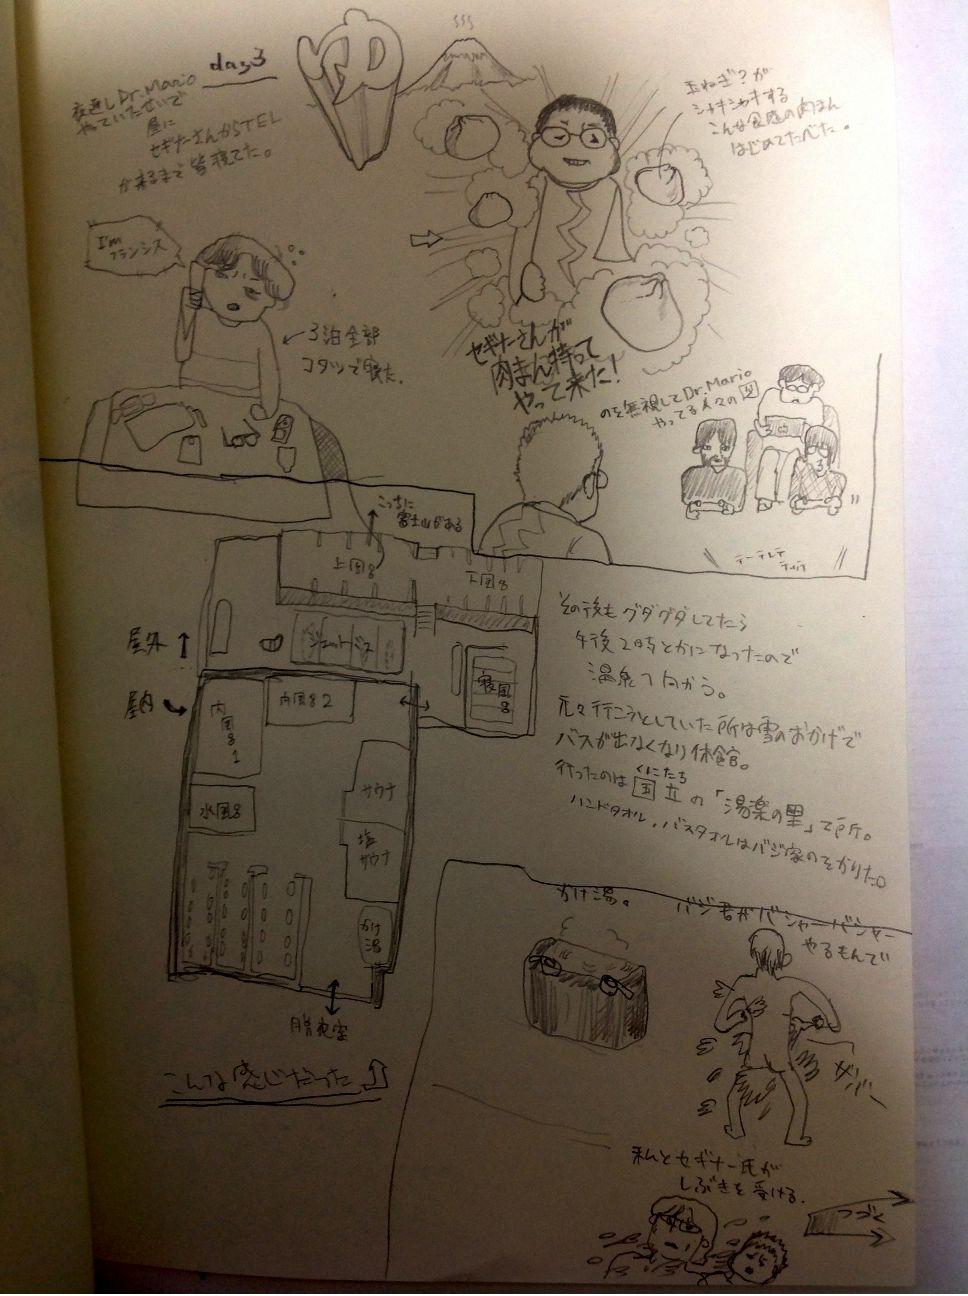 day 3
ゆ
夜通しDr.Mario
やっていたせいで
昼に
セギナーさんからTEL
が来るまで皆寝てた。
玉ねぎ?が
シャキシャキする
こんな食感の肉まん
はじめてたべた。
I'm
フランシス
3泊全部
コタツで寝た。
セギナーさんが
肉まん持って
やって来た!
のを無視してDr.Mario
やってる人々の図
テーテレテ
こっちに
富士山がある
上風呂
下風呂
屋外
ジェットバス
寝風呂
屋内
内風呂1
内風呂2
水風呂
サウナ
塩
サウナ
かけ
湯
脱衣室
こんな感じだった
その後もグダグダしてたら
午後2時とかになったので
温泉へ向かう。
元々行こうとしていた所は雪のおかげで
バスが出なくなり休館。
くにたち
行ったのは国立の「湯楽の里」て所。
ハンドタオル、バスタオルはバジ家のをかりた。
かけ湯。
バジ君がバシャーバシャー
やるもんで
私とセギナー氏が
しぶきを受ける。
つづく